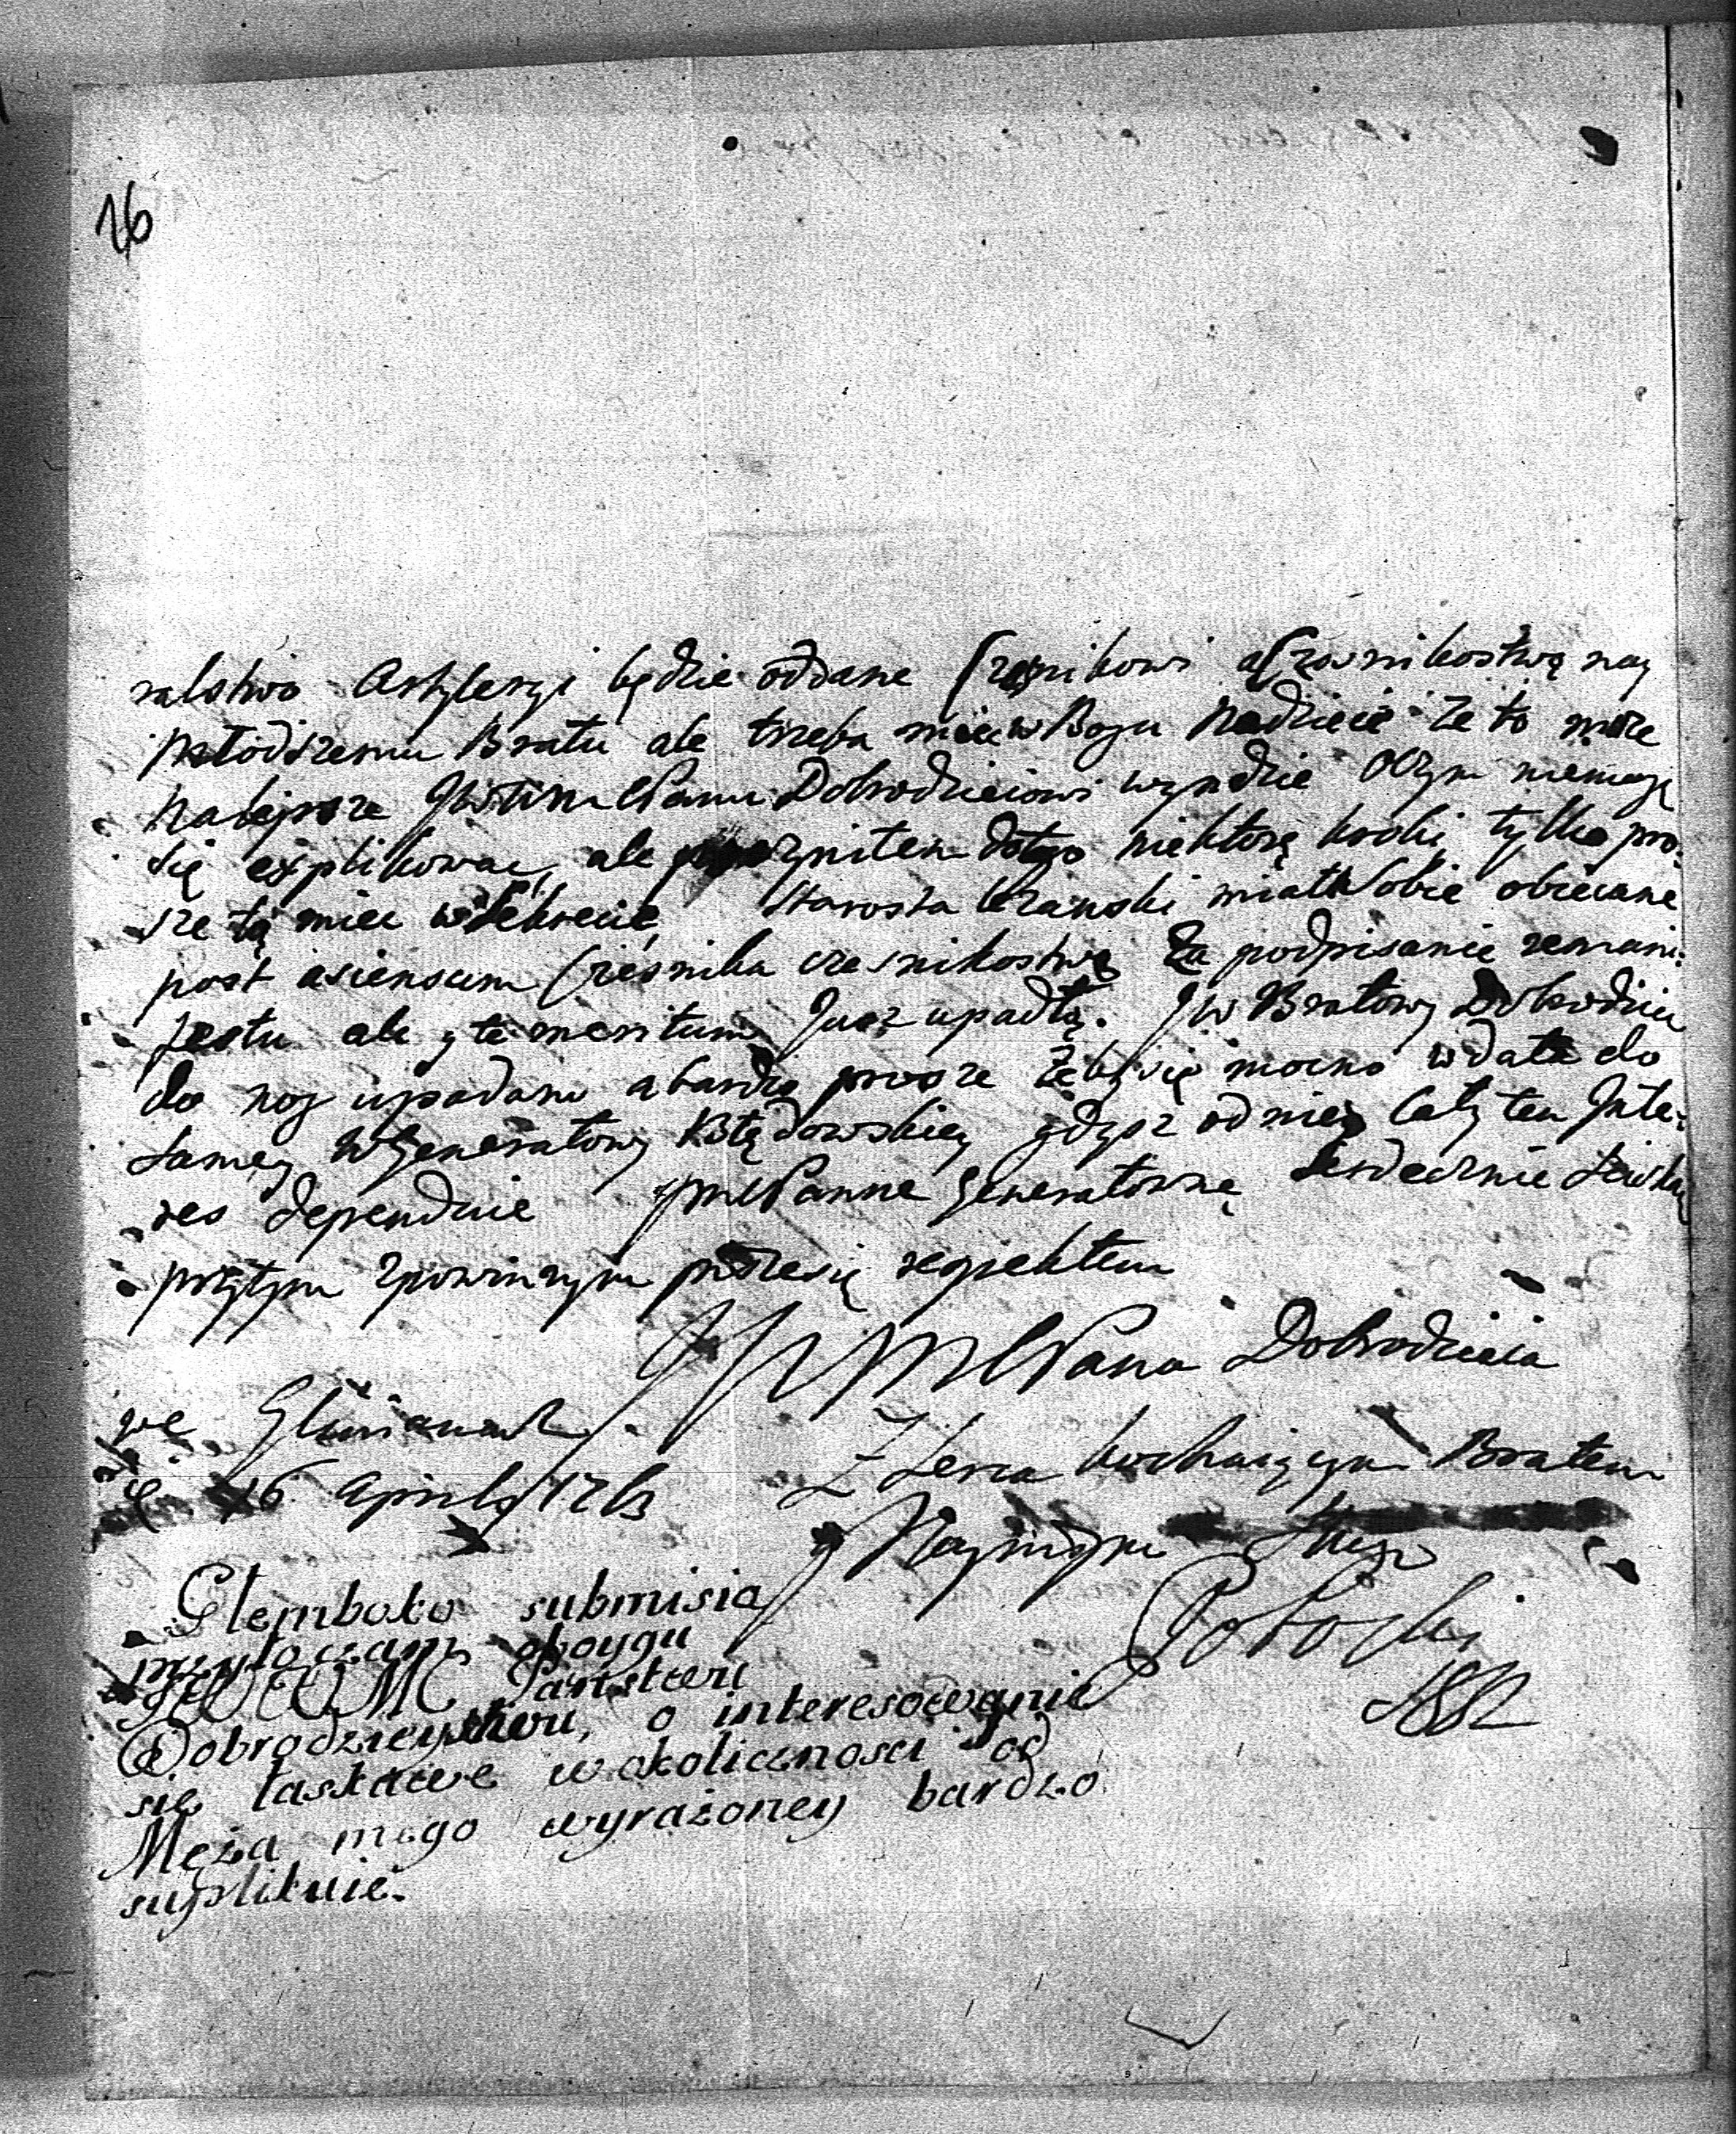 26
ralstwo Artyleryi będzie oddane Czesnikowi a Czesnikostwo nay
młodszemu Bratu ale trzeba miec w Bogu Nadzieie ze to może
nalepsze JWWM Panu Dobrodzieiowi wyndzie Oczym niemogę
się explikowac, ale uczyniłem do tego niektorę kroki, tylko pro:
szę tą miec w sekrecie, Starosta miał Sobie obiecane
post asiensum Czesnika czesnikostwo Za podpisanie remani:
festu ale y te meritum Juz upadło. JW Bratowy Dobrodziki
do nog upadam a bardzo prosze Żeby się mocno wdała do
samey W Generałowy Błędowskiey gdysz od niey Cały ten Inte:
res dependuie JM Panne Generałownę serdecznie sciskaj
przytym z powinnym piszesię respektem
JWWM Pana Dobrodzieia
we Glinianach
16 Aprilis 1763
Z serca kochaiącym Bratem
y Nayniższym Sługą
Potocki
Glemboko submisia
przytoczam oboygu
JWWMC Panstwu
Dobrodzieystwu, o interesowanie
się łaskawe w okolicznosci od
Męża mego wyrażoney bardzo
suplikuie.